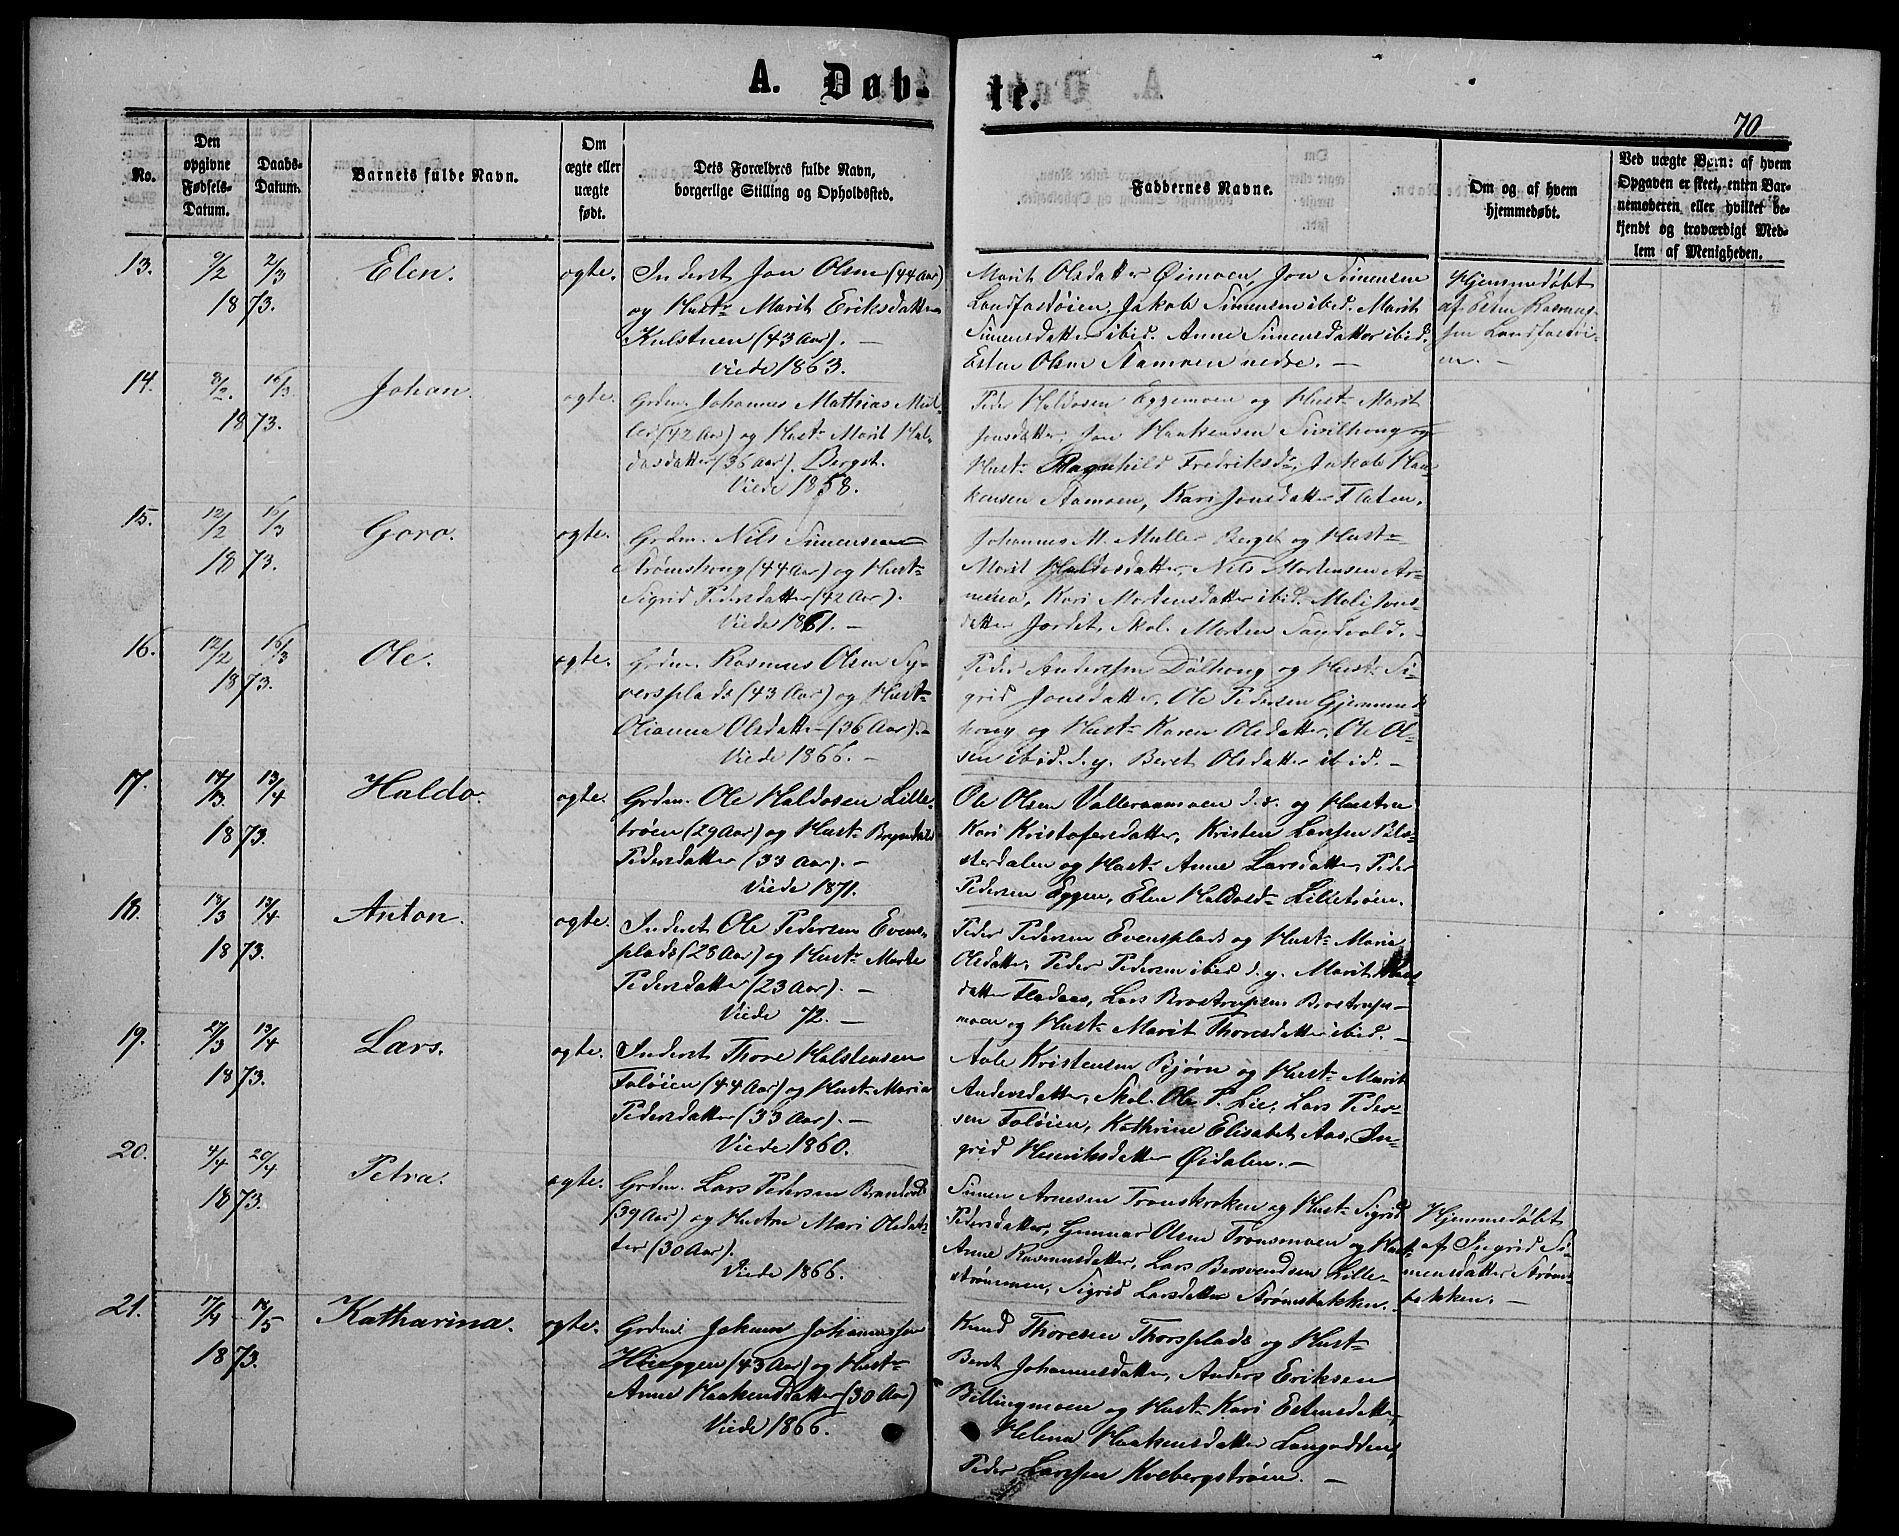 A. Døb-
te.
70
No.
Den opgivne Fødsels-Datum.
Daabs-Datum.
Barnets fulde Navn.
Om ægte eller uægte født.
Dets Forældres fulde Navn, borgerlige Stilling og Opholdssted.
Faddernes Navne.
Om og af hvem hjemmedøbt.
Ved uægte Børn: af hvem Opgaven er skeet, enten Bar-nemoderen eller hvilket be-kjendt og troværdigt Med-lem af Menigheden.
13. 9/2 2/3 Elen. ægte. Inderst Jon Olsen (44 Aar)
1873. og Hustr Marit Eriksdatter
Kulstuen (43 Aar). —
Viede 1863.
Marit Olsdatter Øimoen, Jon Simensen
Landfastøien, Jakob Simensen ibid. Marit
Simensdatter ibid. Anne Simensdatter ibid.
Esten Olsen Aamoen nedre. —
Hjemmedøbt
af Esten Rasmus-
sen Landfastøi-
en. —
14. 8/2. 16/3 Johan. ægte. Grdm. Johannes Mathias Mül-
1873. ler (42 Aar) og Hustr Marit Hal-
dosdatter (36 Aar). Berget.
Viede 1858.
Peder Haldosen Eggemoen og Hustr Marit
Jonsdatter, Jon Haakensen Sivilhong og
Hustr Ragnhild Fredriksd., Jakob Haa-
kensen Aamoen, Kari Jonsdatter Flaten.
15. 12/2 16/3 Goro. ægte. Grdm. Nils Simensen
1873. Strømshong (44 Aar) og Hustr
Sigrid Pedersdatter (42 Aar).
Viede 1861. —
Johannes M. Müller Berget og Hustr
Marit Haldosdatter, Nils Mortensen Ar-
nemo, Kari Mortensdatter ibid. Mali Jons-
datter Jordet, Skol. Morten Sandvold. —
16. 12/2 16/3 Ole. ægte. Grdm. Rasmus Olsen Sy-
1873. versplads (43 Aar) og Hustr
Olianna Olsdatter (36 Aar). —
Viede 1866. —
Peder Anderssen Dølhong og Hustr Si-
grid Jonsdatter, Ole Pedersen Gjermunds-
hong og Hustr Karen Olsdatter, Ole Ol-
sen ibid. d.y. Beret Olsdatter ibid. —
17. 14/3 13/4 Haldo. ægte. Grdm. Ole Haldosen Lille-
1873. trøen (29 Aar) og Hustr Bryndhild
Pedersdatter (33 Aar). —
Viede 1871.
Ole Olsen Valleraamoen d.æ. og Hustru
Kari Kristofersdatter, Kristen Larssen
sterdalen og Hustr Anne Larsdatter, Peder
Pedersen Eggen, Elen Haldosd. Lilletrøen.
18. 18/3 13/4 Anton. ægte. Inderst Ole Pedersen Evens-
1873. plads (28 Aar) og Hustr Marte
Pedersdatter (23 Aar). —
Viede 72. —
Peder Pedersen Evensplads og Hustr Maria
Olsdatter, Peder Pedersen ibid d.y. Marit
datter Flodaas, Lars Brostrupsen Brostrups-
moen og Hustr Marit Thoresdatter ibid. —
19. 27/3 13/4 Lars. ægte. Inderst Thore Halstensen
1873. Foløien (44 Aar) og Hustr Maria
Pedersdatter (33 Aar). —
Viede 1860.
Aale Kristensen Bjørn og Hustr Marit
Andersdatter, Skol. Ole P. Lie, Lars Peder-
sen Foløien, Kathrine Elisabet Aas, In-
grid Henriksdatter Øidalen. —
20. 4/4 20/4 Petra. ægte. Grdm. Lars Pedersen Brandvold
1873. (39 Aar) og Hustru Mari Olsdat-
ter (30 Aar).
Viede 1866.
Simen Arnesen Tronskroken og Hustr Sigrid
Pedersdatter, Gunnar Olsen Tronsmoen og Hustr
Anne Rasmusdatter, Lars Bersvendsen Lille-
strømmen, Sigrid Larsdatter Strømsbakken.
Hjemmedøbt
af Ingrid Si-
mensdatter Strøms-
bakken. —
21. 17/4 18/5 Katharina. ægte. Grdm. Jakum Johannessen
1873. Høieggen (43 Aar) og Hustr
Anne Haakensdatter (30 Aar)
Viede 1866.
Knud Thoresen Thorsplads og Hustr
Beret Johannesdatter, Anders Eriksen
Billingmoen og Hustr Kari Estensdatter,
Helena Haakensdatter Langodden,
Peder Larssen Kvebergstrøen. —